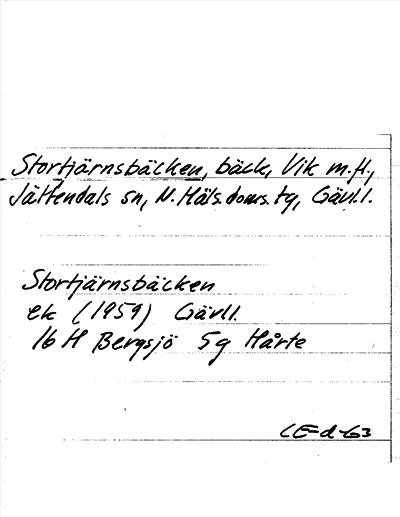 Stortjärnsbäcken, bäck, Vik m.fl.,
Jättendals sn, N. Häls. doms. tg, Gävl.l.
Stortjärnsbäcken
ek (1959) Gävl.l.
16 H Bergsjö 5g Hårte
CE-d-63